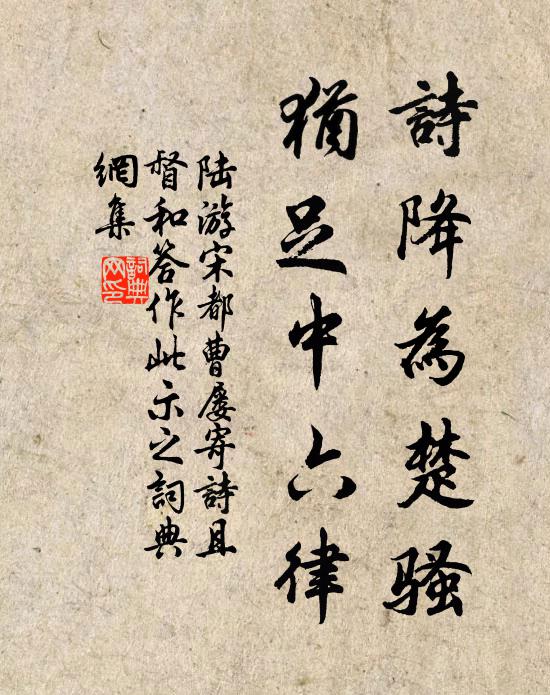 詩降為楚骚
猶足中六律
陆游宋都曹屡寄詩且
督和答作此示之詞典
網集
詞典
网印